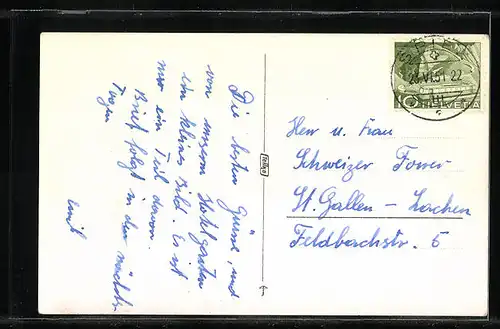 Die besten Grüsse, und
von unserm Hotelgarten
ein kleines Bild. Es ist
nur ein Teil davon.
Brief folgt in den nächsten
Tagen
Emil
Herr u. Frau
Schweizer
St. Gallen - Lachen
Feldbachstr. 5
VI.51 22
10 HELVETIA